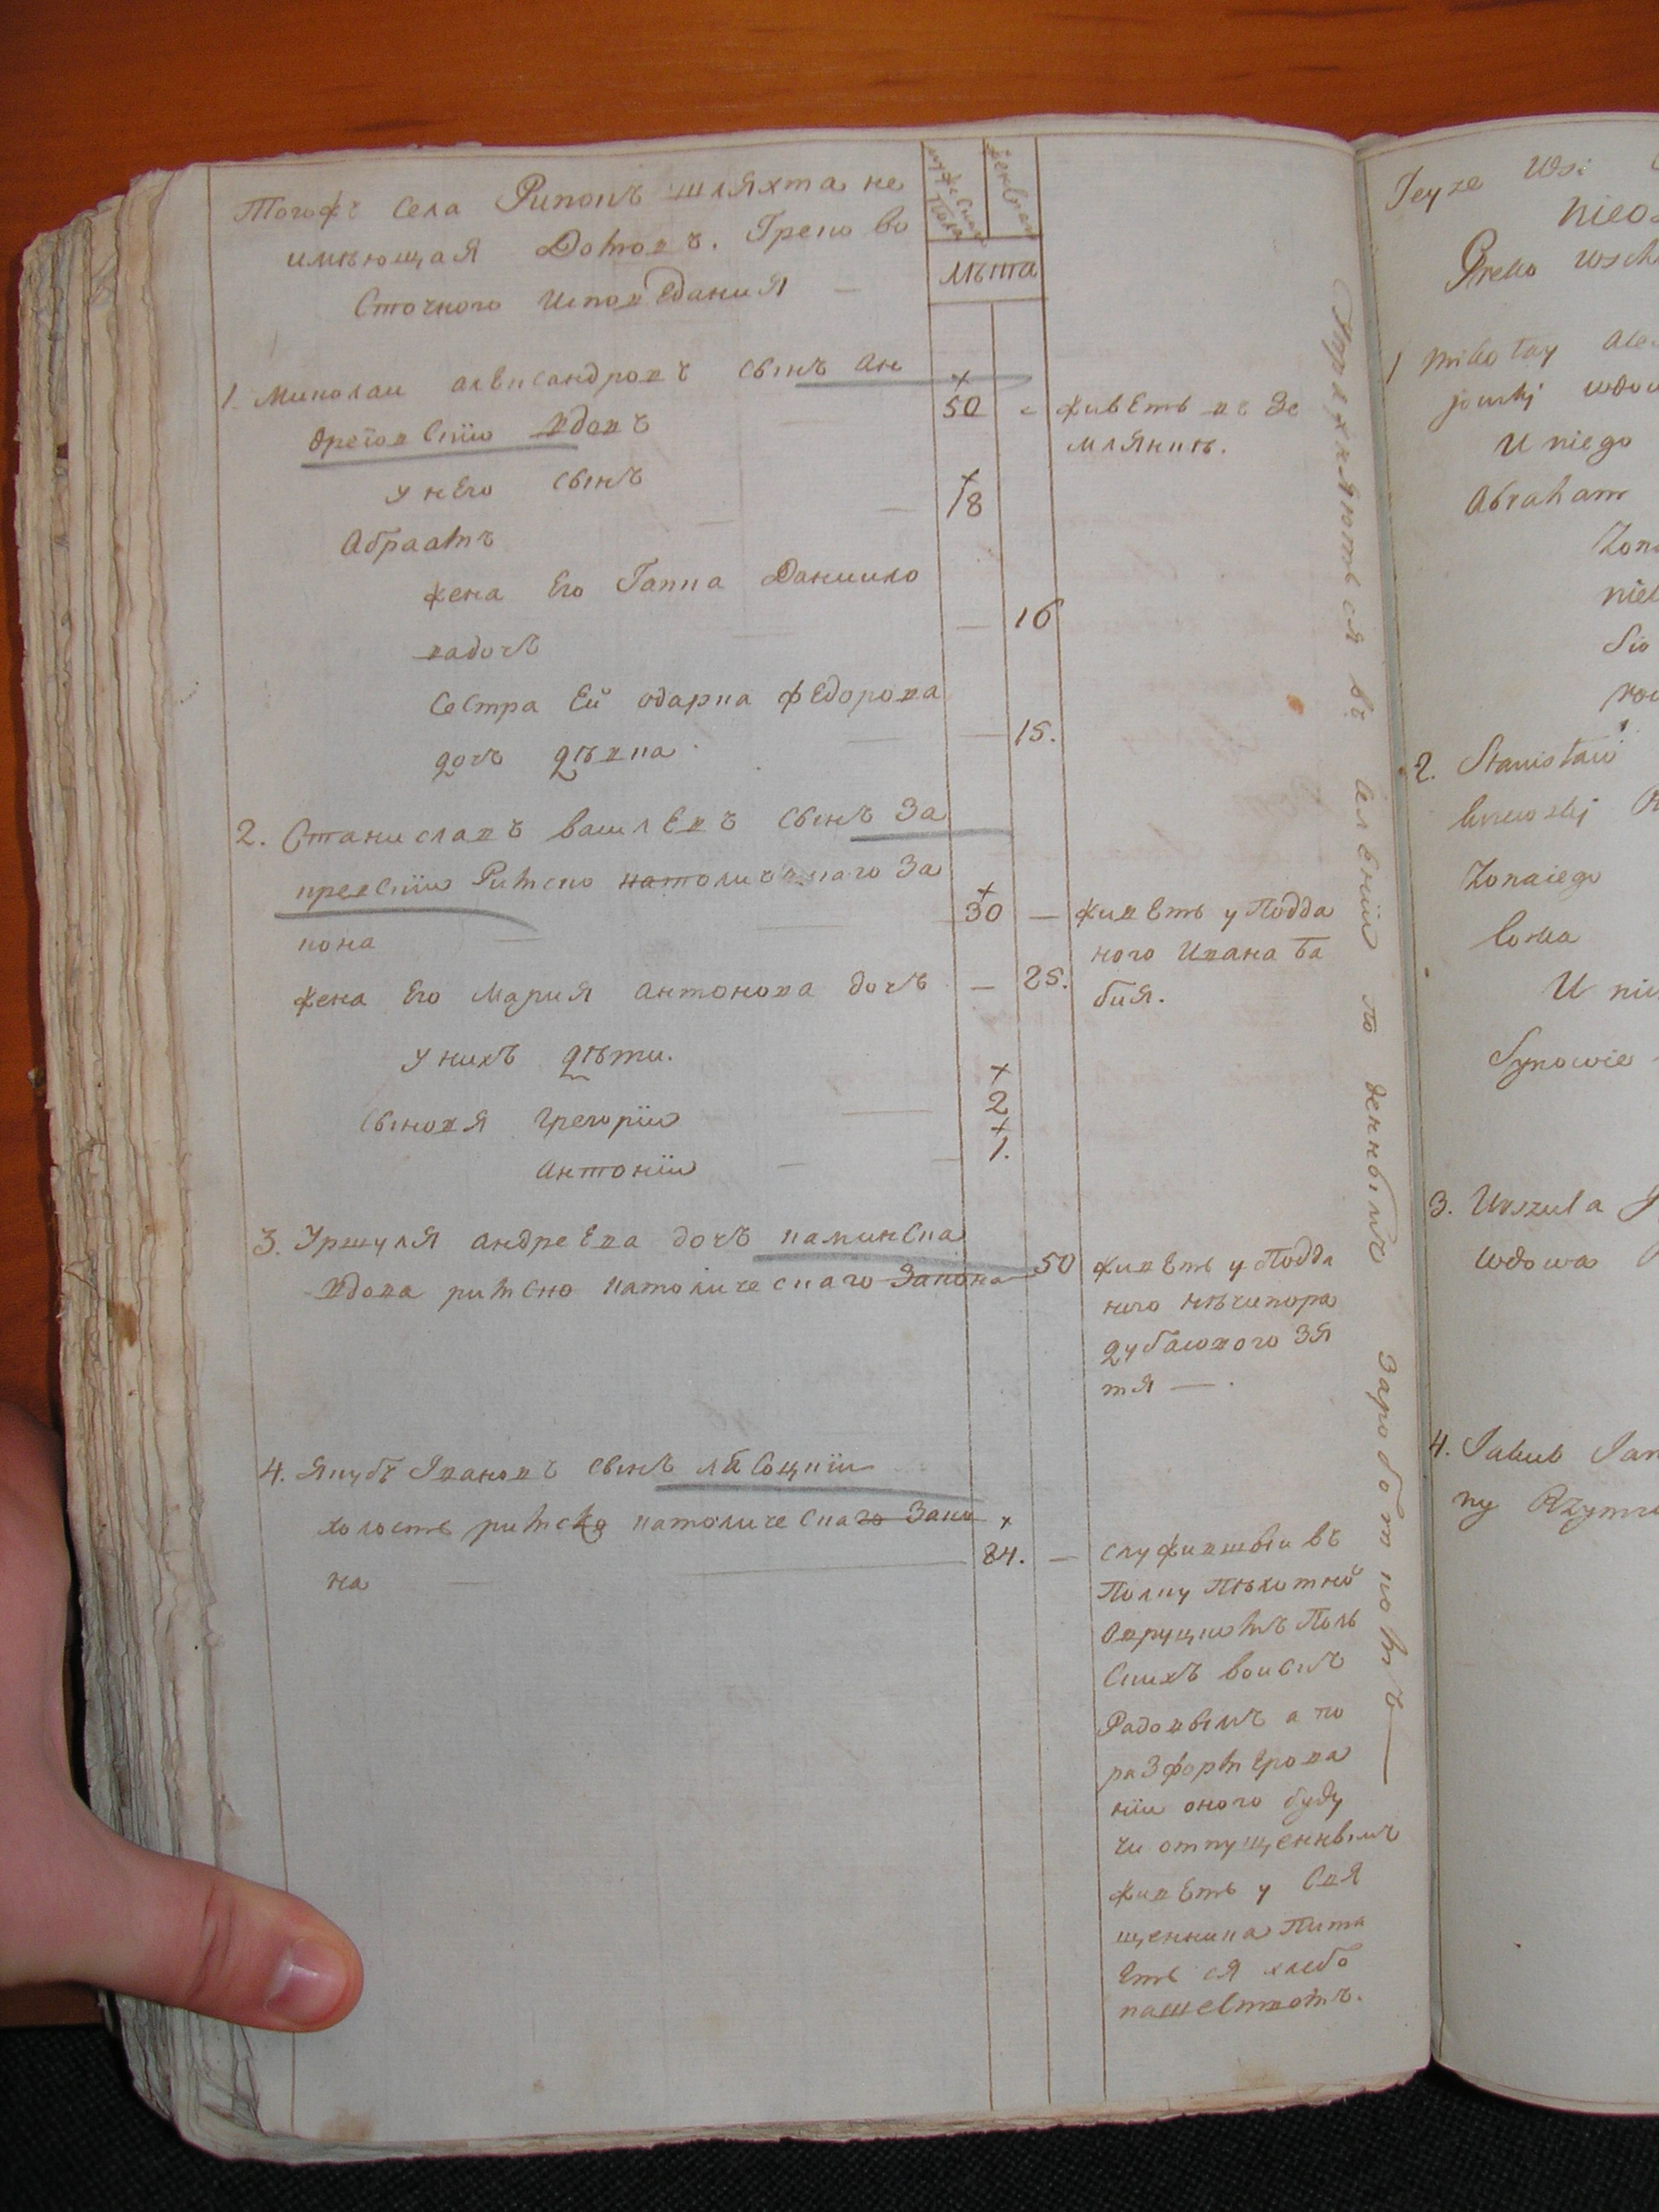 Тогожъ села Рипокъ шляхта не
имѣющая Домовъ. Греко во
сточного исповедания —
мужеска
пола
женска
лѣта
1. Миколаи александровъ сынъ ан
дреїовскїи вдовъ
50 - живеть въ зе
млянкѣ.
у него сынъ
18
Абраамъ
жена его Гапка Данило
вадочь
16
сестра ей одарка федорова
дочь дѣвка
15.
2. Станиславъ васильевъ сынъ За
кревскїи Римско католическаго за
кона
30 — живеть у Подда
ного Ивана Ба
бия.
жена его Мария антонова дочь — 25.
у нихъ дѣти.
сыновя Грегорїи
2
антонїи
1.
3. Уршуля андреева дочь каминска
вдова римско католическаго закона
50 живеть у Подда
ного Нѣчипора
Дубасового зя
тя — .
4. Якубъ Івановъ сынъ лясоцкїи
холость римско католическаго зако
на
84. — служившыи въ
Полку Пѣхотной
Польскихъ воискъ
Радовымъ а по
разформерова
нїи оного буду
чи отпущеннымъ
живеть у свя
щенника Пита
еть ся хлебо
пашествомъ.
Упражняються въ по денныхъ заработкахъ —
Teyze Wsi
nieo
Greko wsch
1 Mikołay Ale
jowskj wdow
U niego
Abraham
Zon
niel
Sio
2. Stanisław
krewskj R
Zona iego
Corka
U nic
Synowie
3. Urszula
wdowa
4. Jakub Jan
ny Rzyms